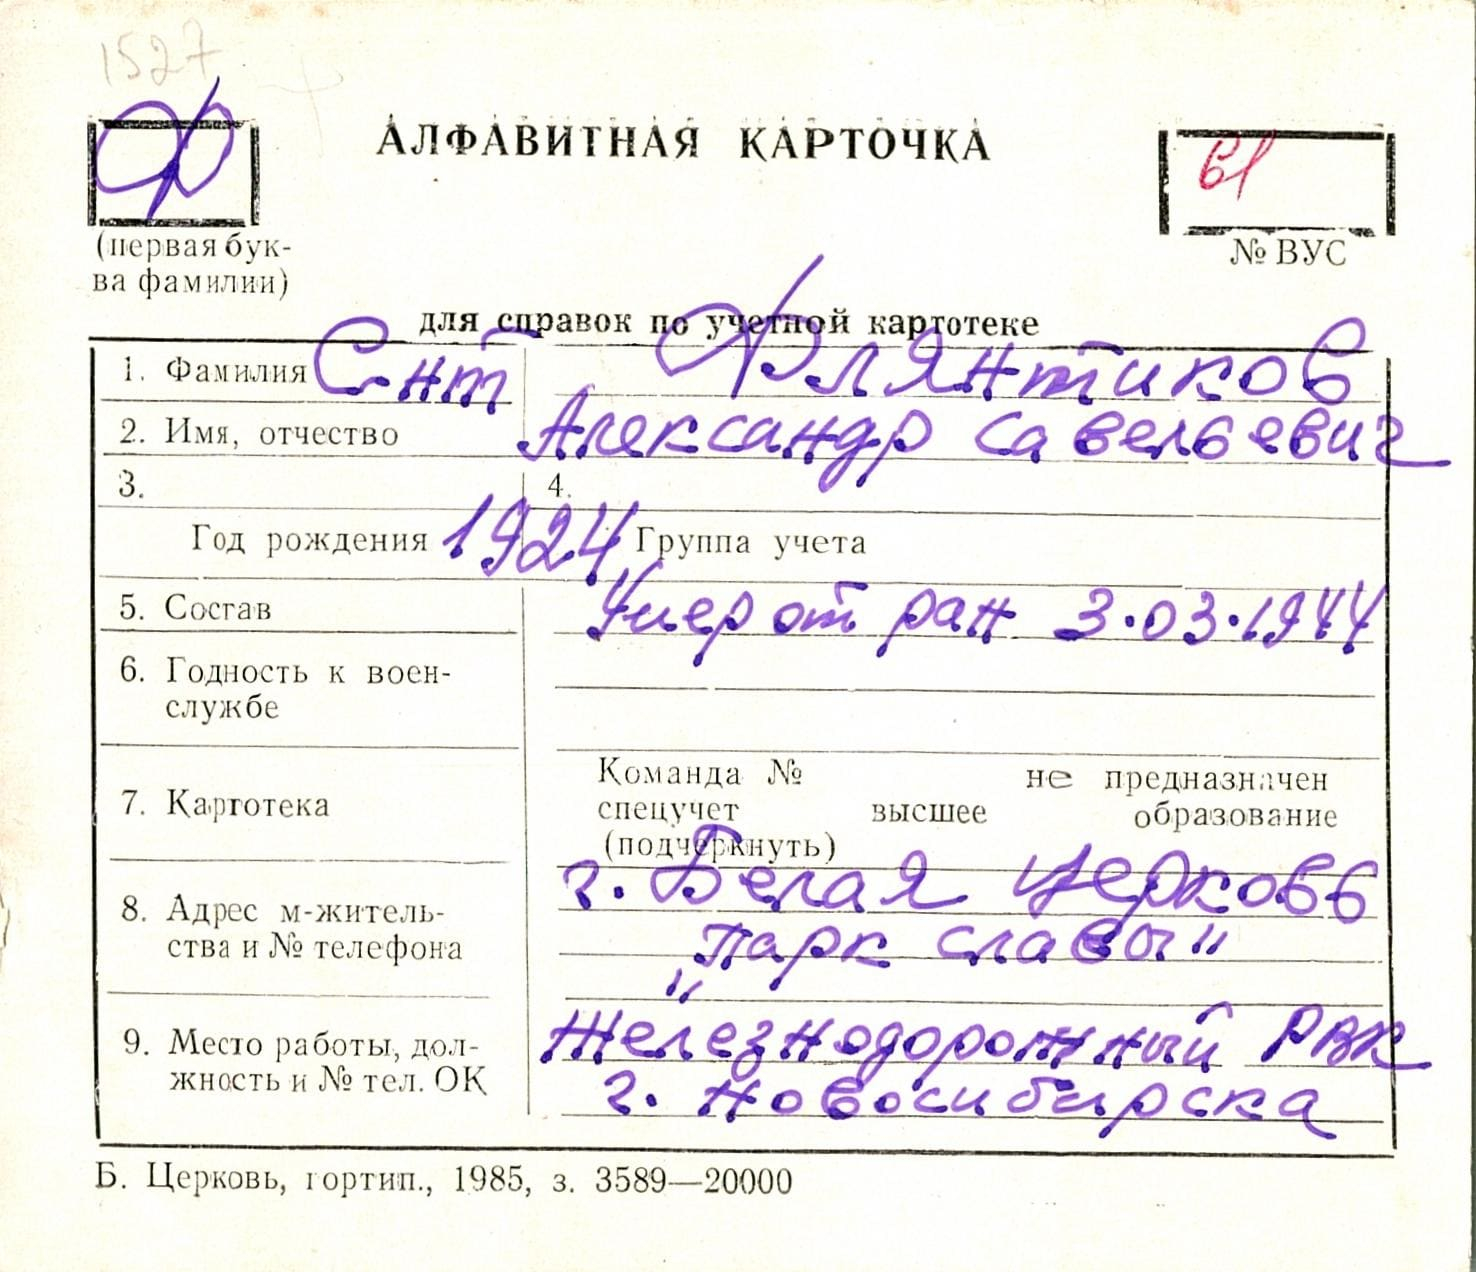 1527
Ф
АЛФАВИТНАЯ КАРТОЧКА
61
(первая бук-
ва фамилии)
№ ВУС
для справок по учетной картотеке
1. Фамилия Снт Флянтиков
2. Имя, отчество Александр Савельевич
3. 4.
Год рождения 1924 Группа учета
5. Состав Умер от ран 3.03.1944
6. Годность к воен-
службе
Команда № не предназначен
7. Картотека спецучет высшее образование
(подчеркнуть)
г. Белая Церковь
8. Адрес м-житель-
ства и № телефона „Парк славы"
9. Место работы, дол- Железнодорожный РВК
жность и № тел. ОК г. Новосибирска
Б. Церковь, гортип., 1985, з. 3589—20000